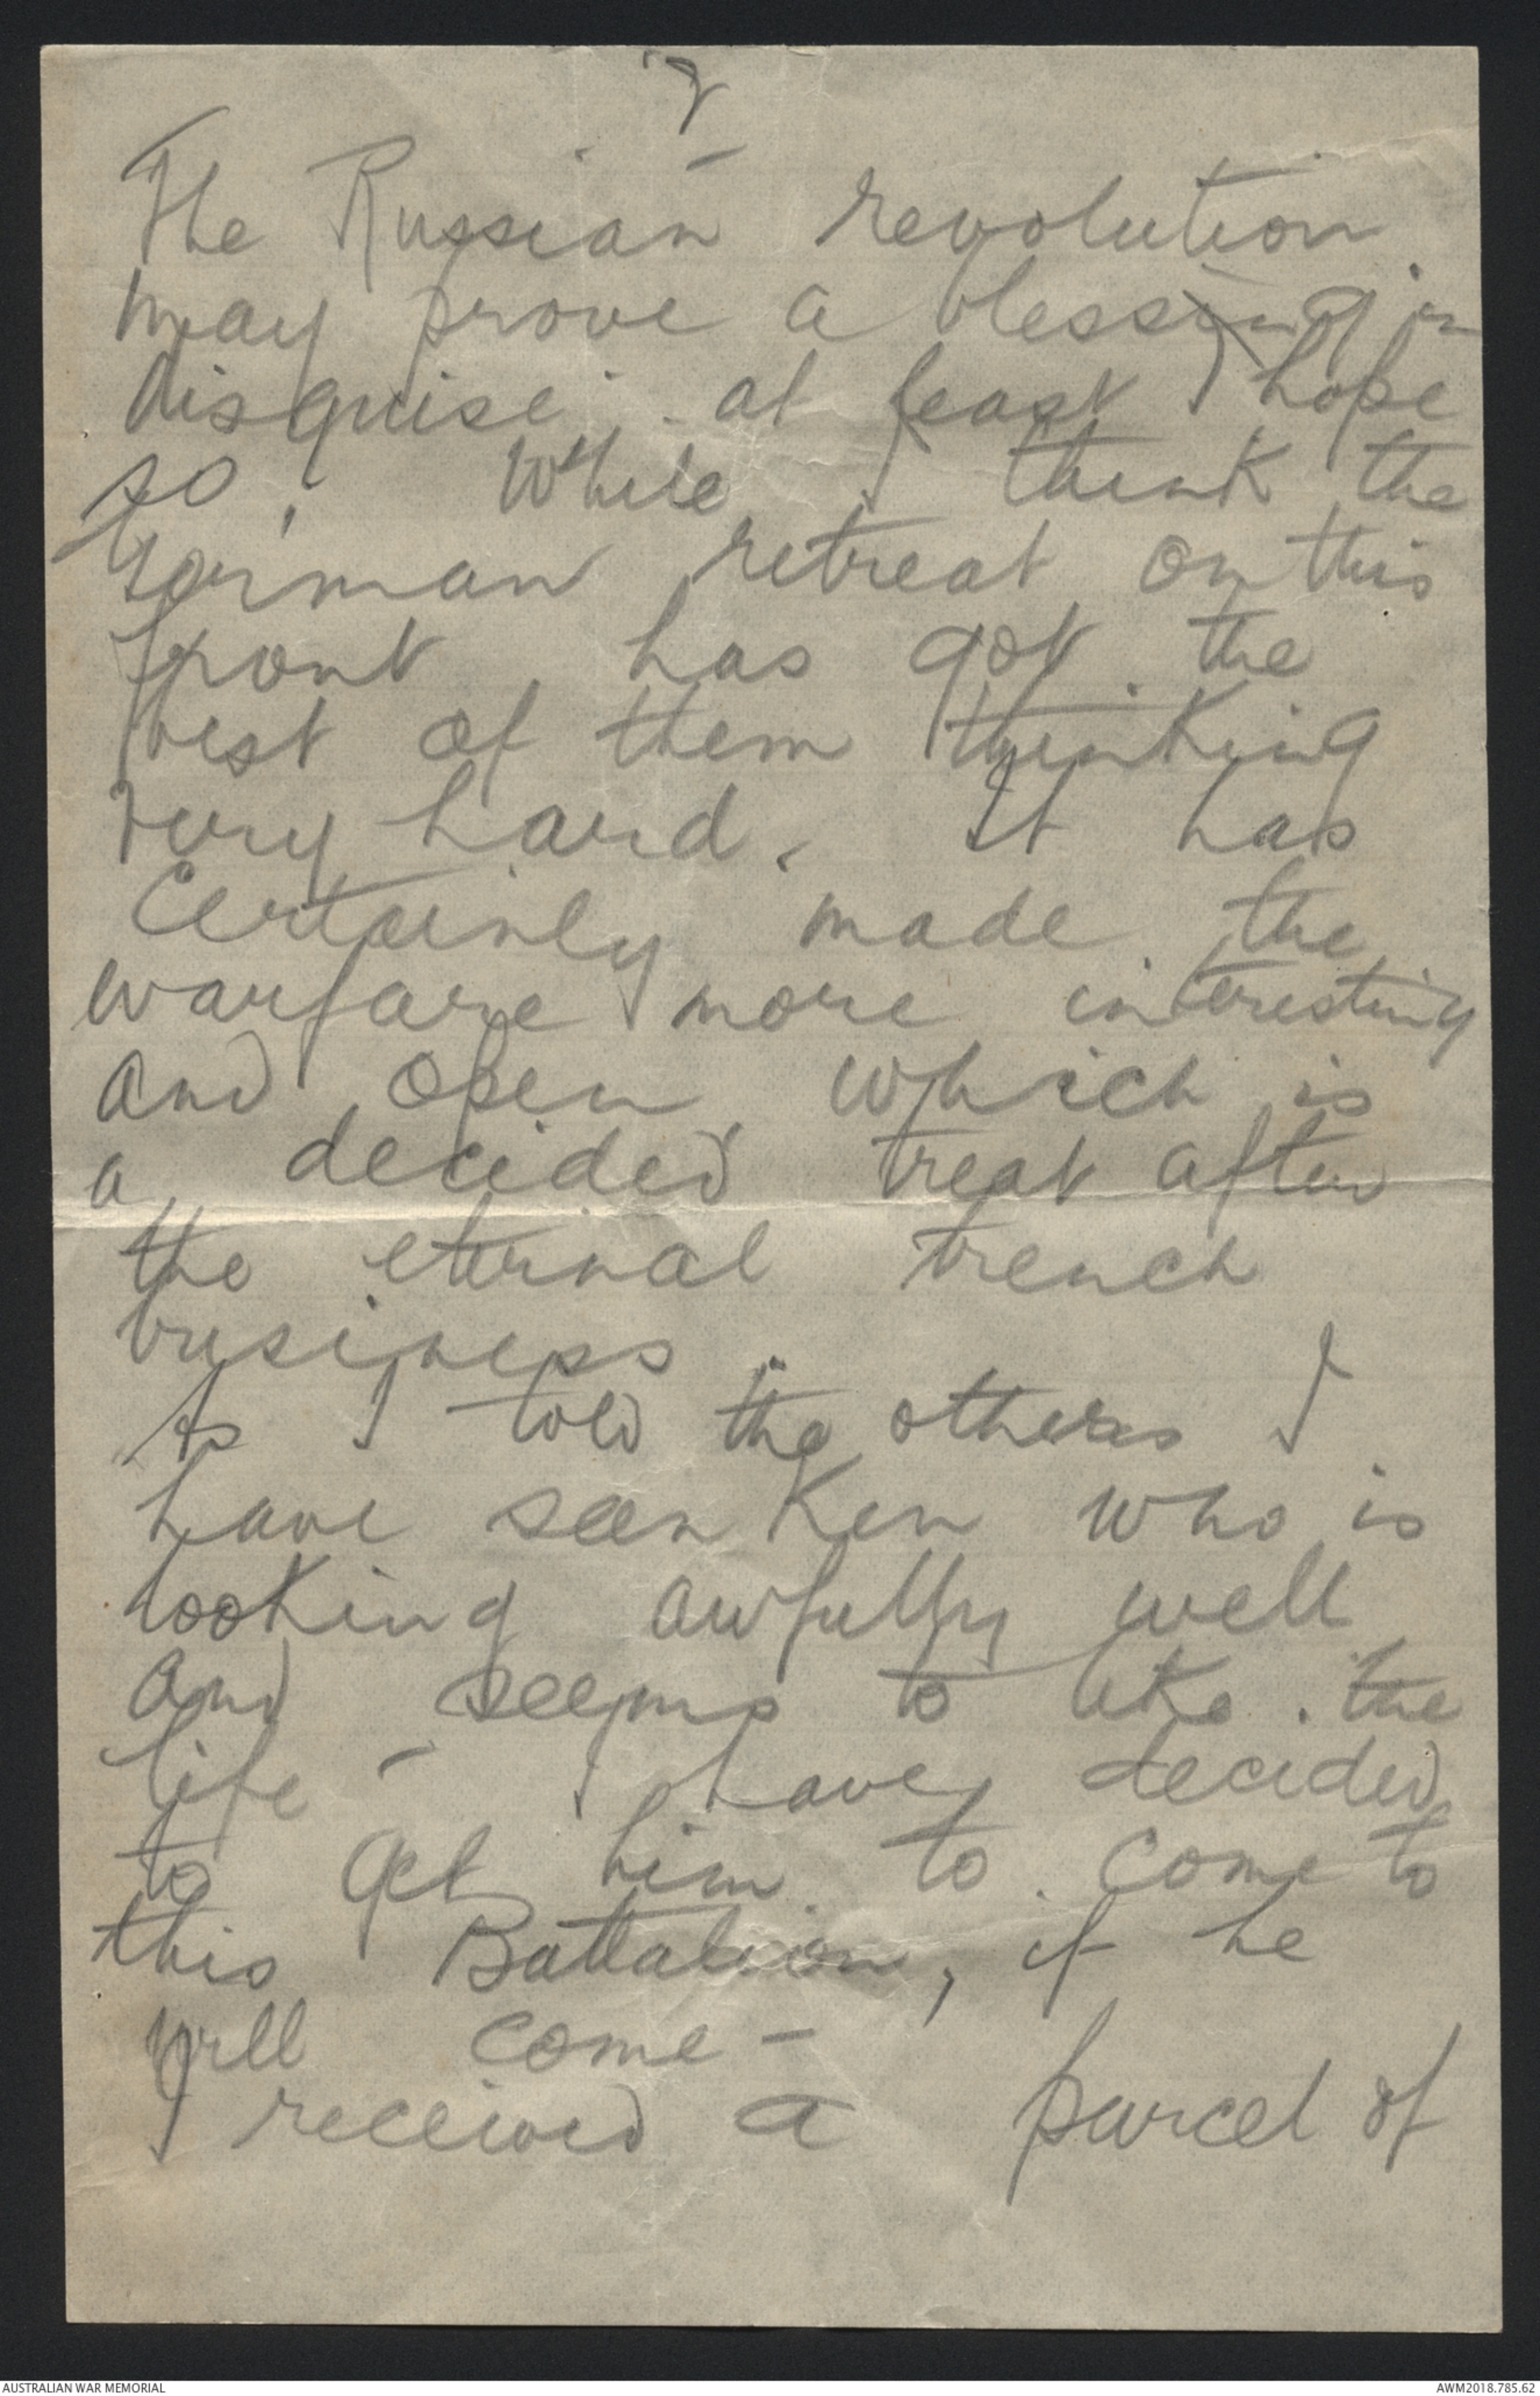 The Russian revolution
may prove a blessing in
disguise, at least I hope
so. While I think the
German retreat on this
front has got the
best of them thinking
very hard. It has
certainly made the
warfare more interesting
and open which is
a decided treat after
the eternal trench
business.
As I told the others I
have seen Ken who is
looking awfully well
and seems to like the
life - I have decided
to get him to come to
this Battalion, if he
will come -
I received a parcel of
AUSTRALIAN WAR MEMORIAL
AWM2018.785.62